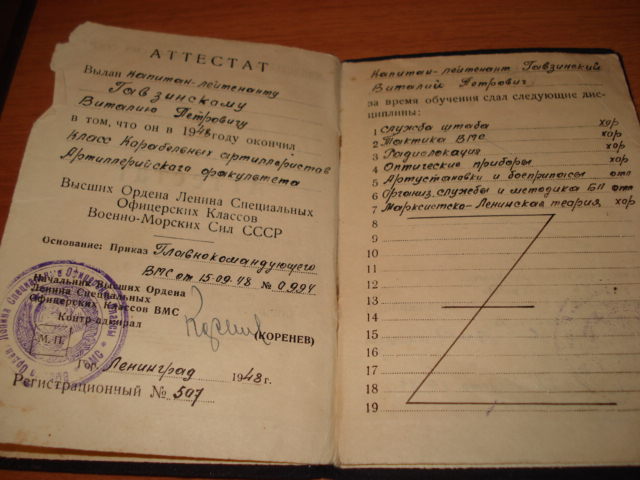 АТТЕСТАТ
Выдан капитан-лейтенанту
Гавзинскому
Виталию Петровичу
в том, что он в 1948 году окончил
Класс Корабельных артиллеристов
Артиллерийского факультета
Высших Ордена Ленина Специальных
Офицерских Классов
Военно-Морских Сил СССР
Основание: Приказ Главнокомандующего
ВМС от 15-09.48 № 0994
Начальник Высших Ордена
Ленина Специальных
Офицерских Классов ВМС
Контр-адмирал
(КОРЕНЕВ)
М. П.
Гор. Ленинград 1948 г.
Регистрационный № 507
Капитан-лейтенант Гавзинский
Виталий Петрович
за время обучения сдал следующие дис-
циплины:
1 Служба штаба хор
2 Тактика ВМС хор
3 Радиолокация хор
4 Оптические приборы хор
5 Артустановки и боеприпасы отл
6 Организ. службы и методика БП отл
7 Марксистско-Ленинская теория, хор
8
9
10
11
12
13
14
15
16
17
18
19